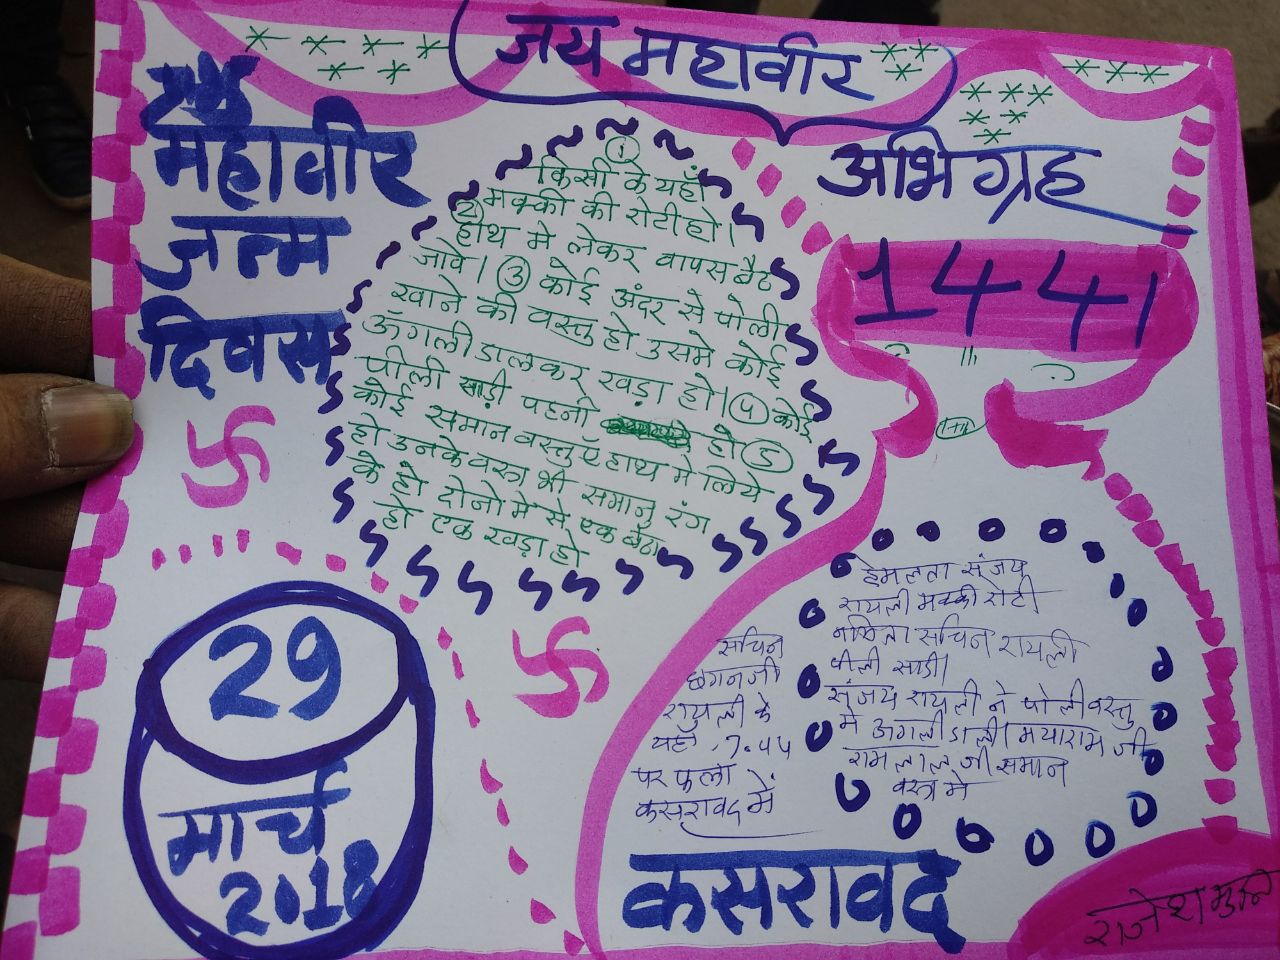 जय महावीर
महावीर
जन्म
दिवस
अभिग्रह
1441
1
किसी के यहाँ
2 मक्की की रोटी हो।
हाथ मे लेकर वापस बैठ
जावे। 3 कोई अंदर से पोली
खाने की वस्तु हो उसमे कोई
ऊँगली डालकर खड़ा हो। 4 कोई
पीली साड़ी पहनी हो 5
कोई समान वस्तुएँ हाथ मे लिये
हो उनके वस्त्र भी समान रंग
के हो दोनो मे से एक बैठा
हो एक खड़ा हो
29
मार्च
2018
सचिन
छगनजी
रायली के
यहाँ 7.44
पर फला
कसरावद में
हेमलता संजय
रायली मक्की रोटी
सचिन रायली
पीली साडी।
संजय रायली ने पोली वस्तु
मे अगली डाली। मयाराम जी
रामलाल जी समान
वस्त्र मे
कसरावद
राजेश मुनि